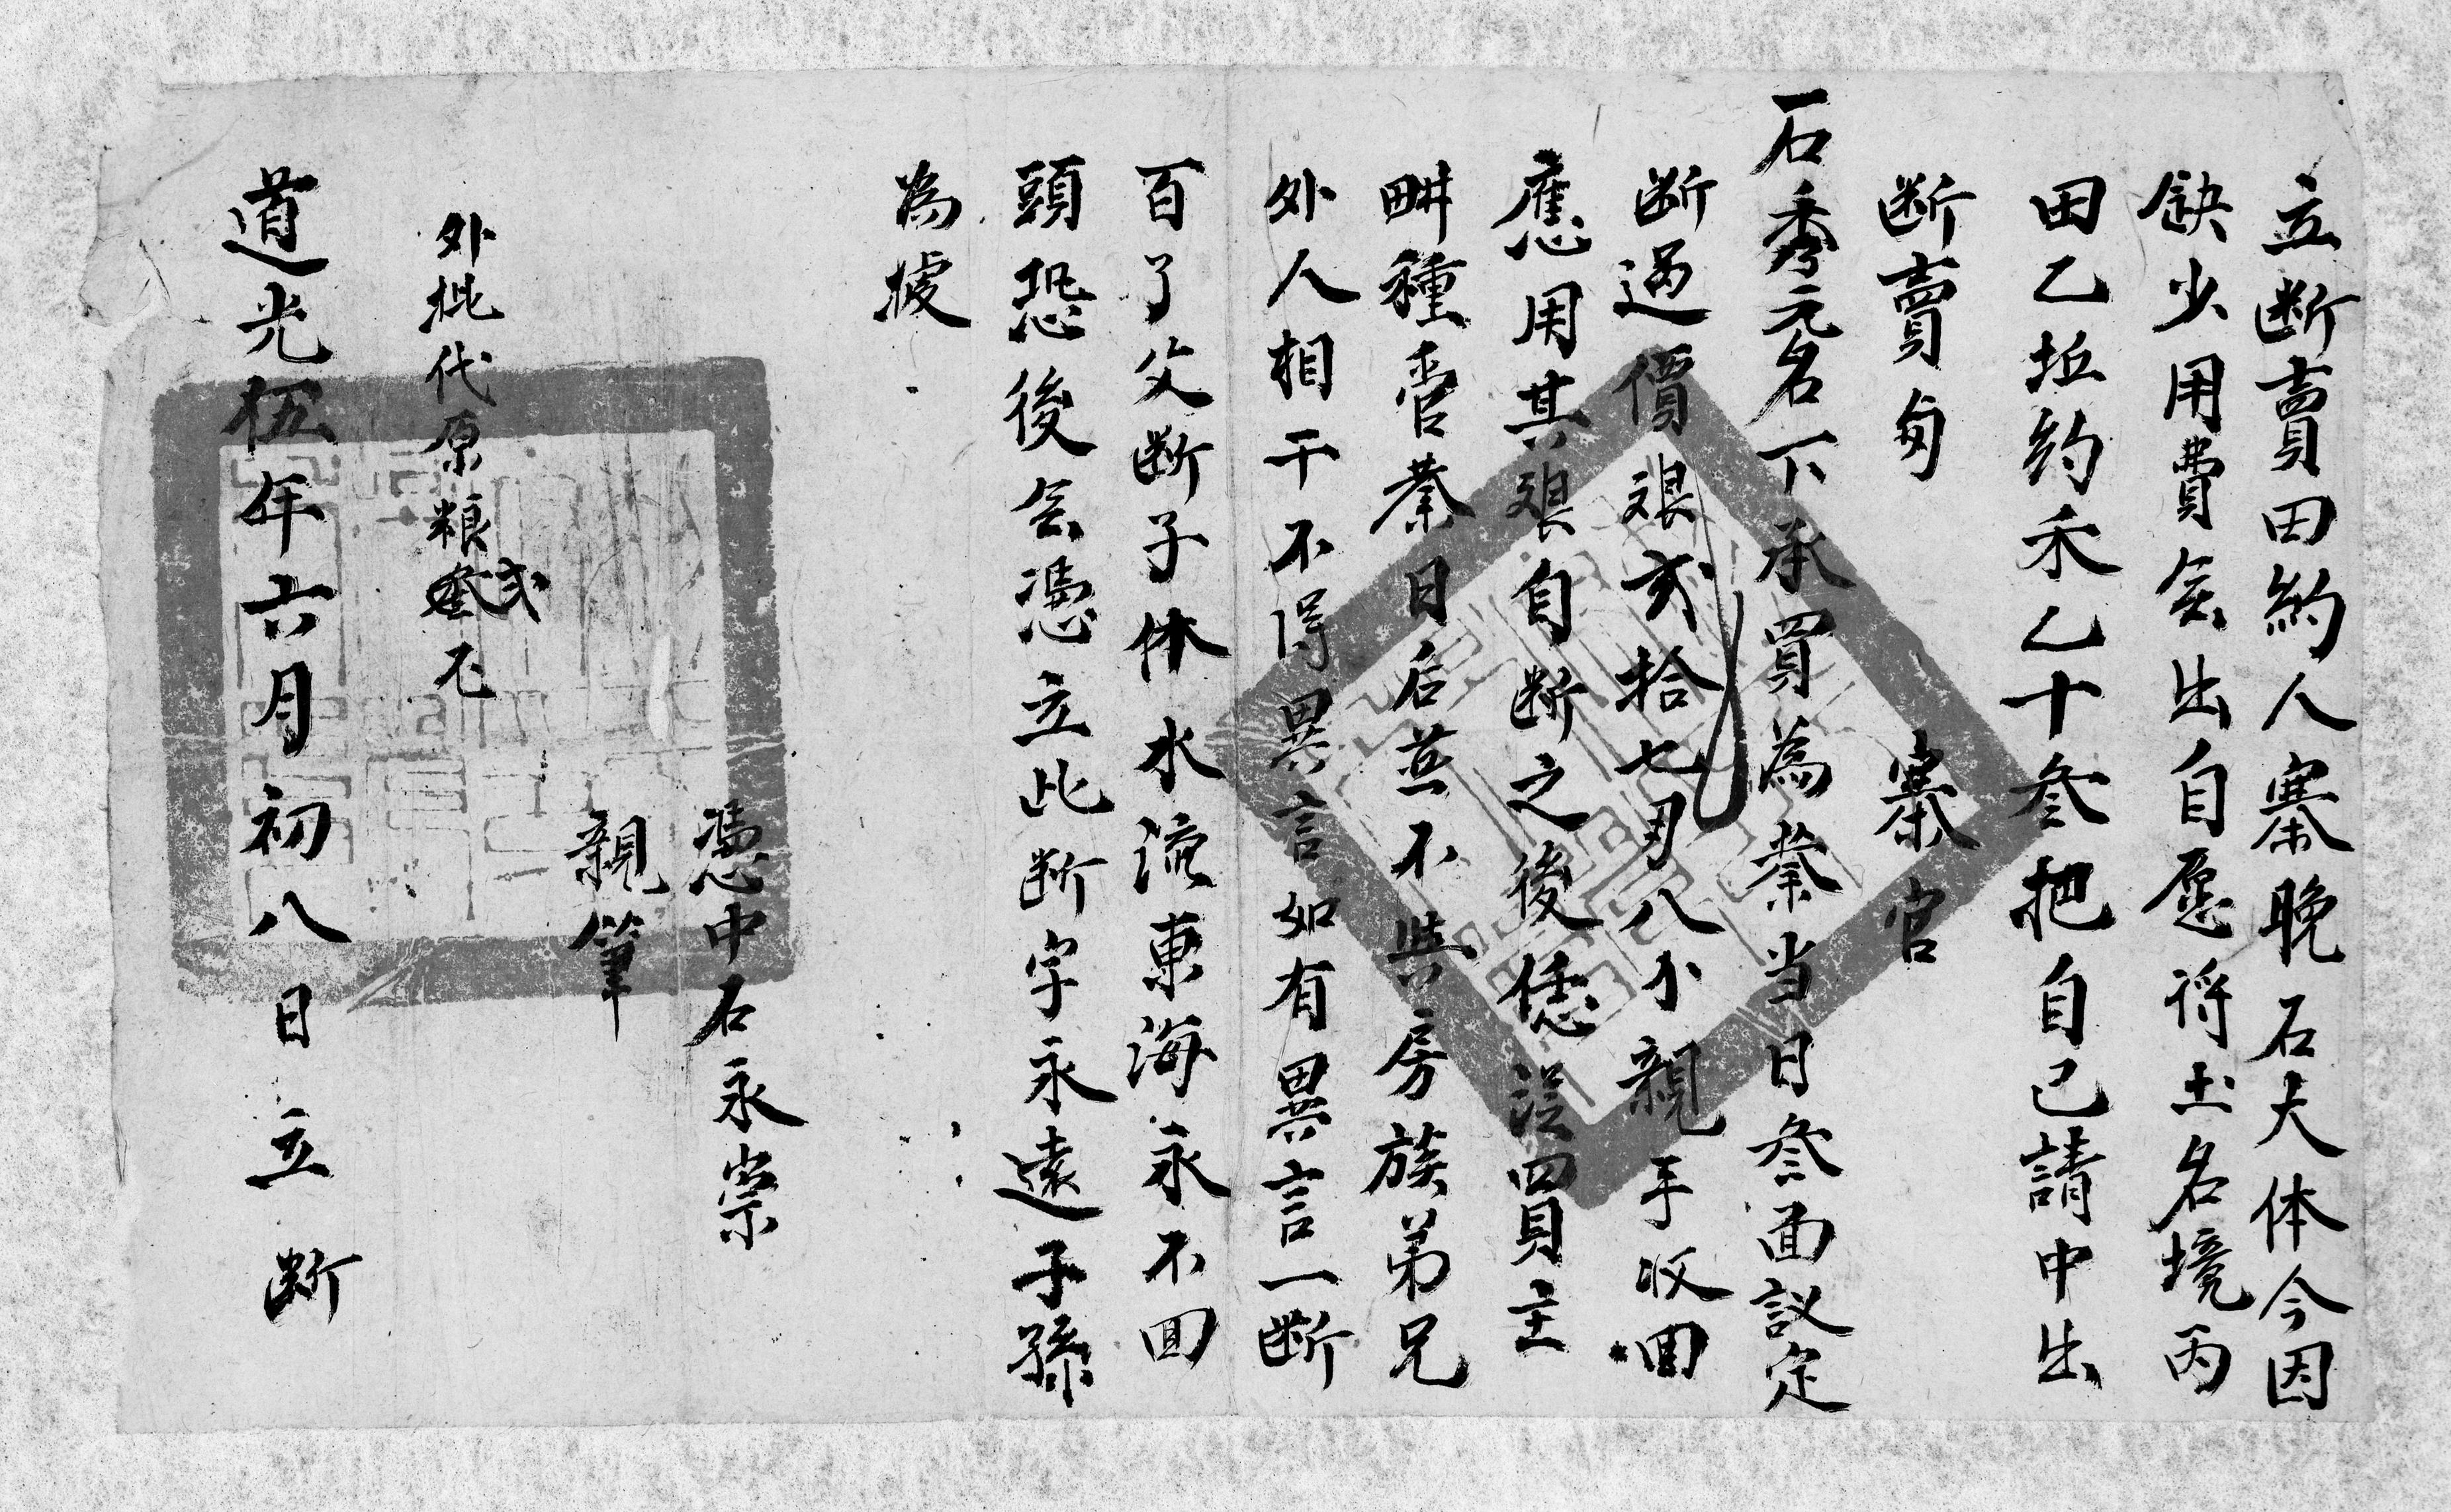 立断賣田約人寨晚石大体今因
缺少用費会出自愿将土名境丙
田乙坵約禾乙十叁把自己請中出
断賣与
寨官
石秀元名下承買為業当日叁面議定
断過價艮弍拾七刃八小親手収回
應用其艮自断之後恁從買主
畊種管業日后並不與房族弟兄
外人相干不得異言如有異言一断
百了父断子休水流東海永不回
頭恐後会憑立此断字永遠子孫
為㨿
憑中石永崇
親筆
外批代原粮弍
道光伍年六月初八日立断